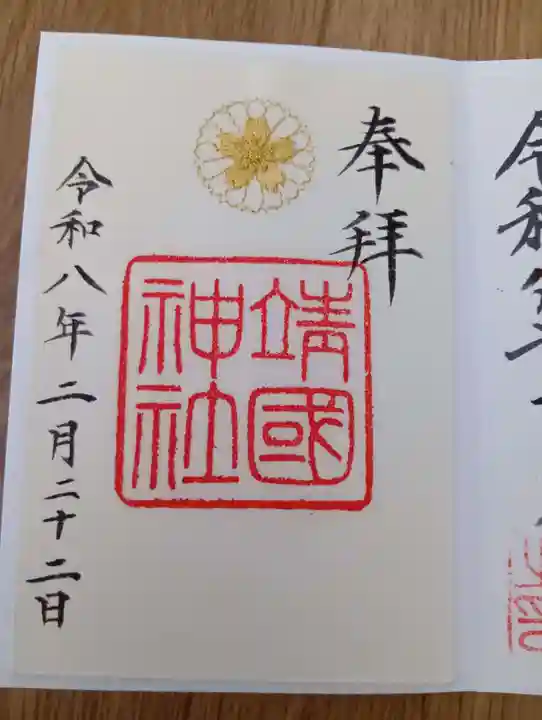 奉拝
靖國
神社
令和八年二月二十二日